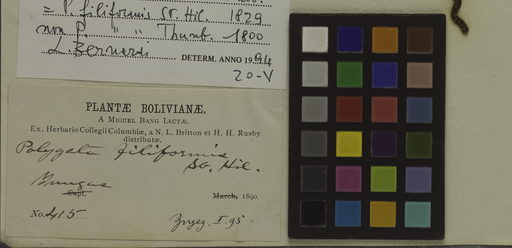 = P. filiformis St. Hil. 1829
non P. " " Thunb. 1800
L. Bernardi DETERM. ANNO 1994
20-V
PLANTÆ BOLIVIANÆ.
A MIGUEL BANG LECTÆ.
Ex. Herbario Collegii Columbiæ, a N. L. Britton et H. H. Rusby
distributæ.
Polygala filiformis
St. Hil.
Yungas
Capi, March, 1890.
No. 415 I.95.